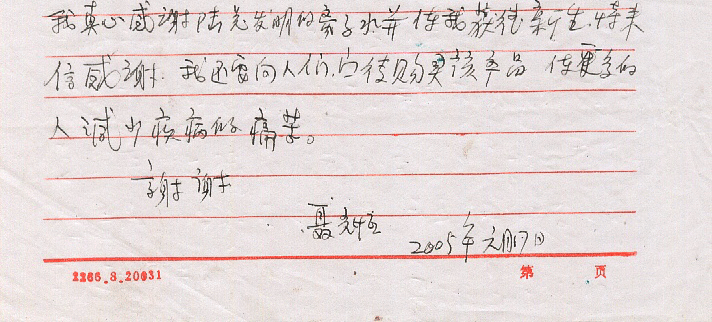 我真心感谢陆总发明的离子水并使我获得新生.特来
信感谢.我还要向人们宣传购买该产品 使更多的
人减少疾病的痛苦。
谢谢
聂
2005年元月17日
2266.8.20031 第 页